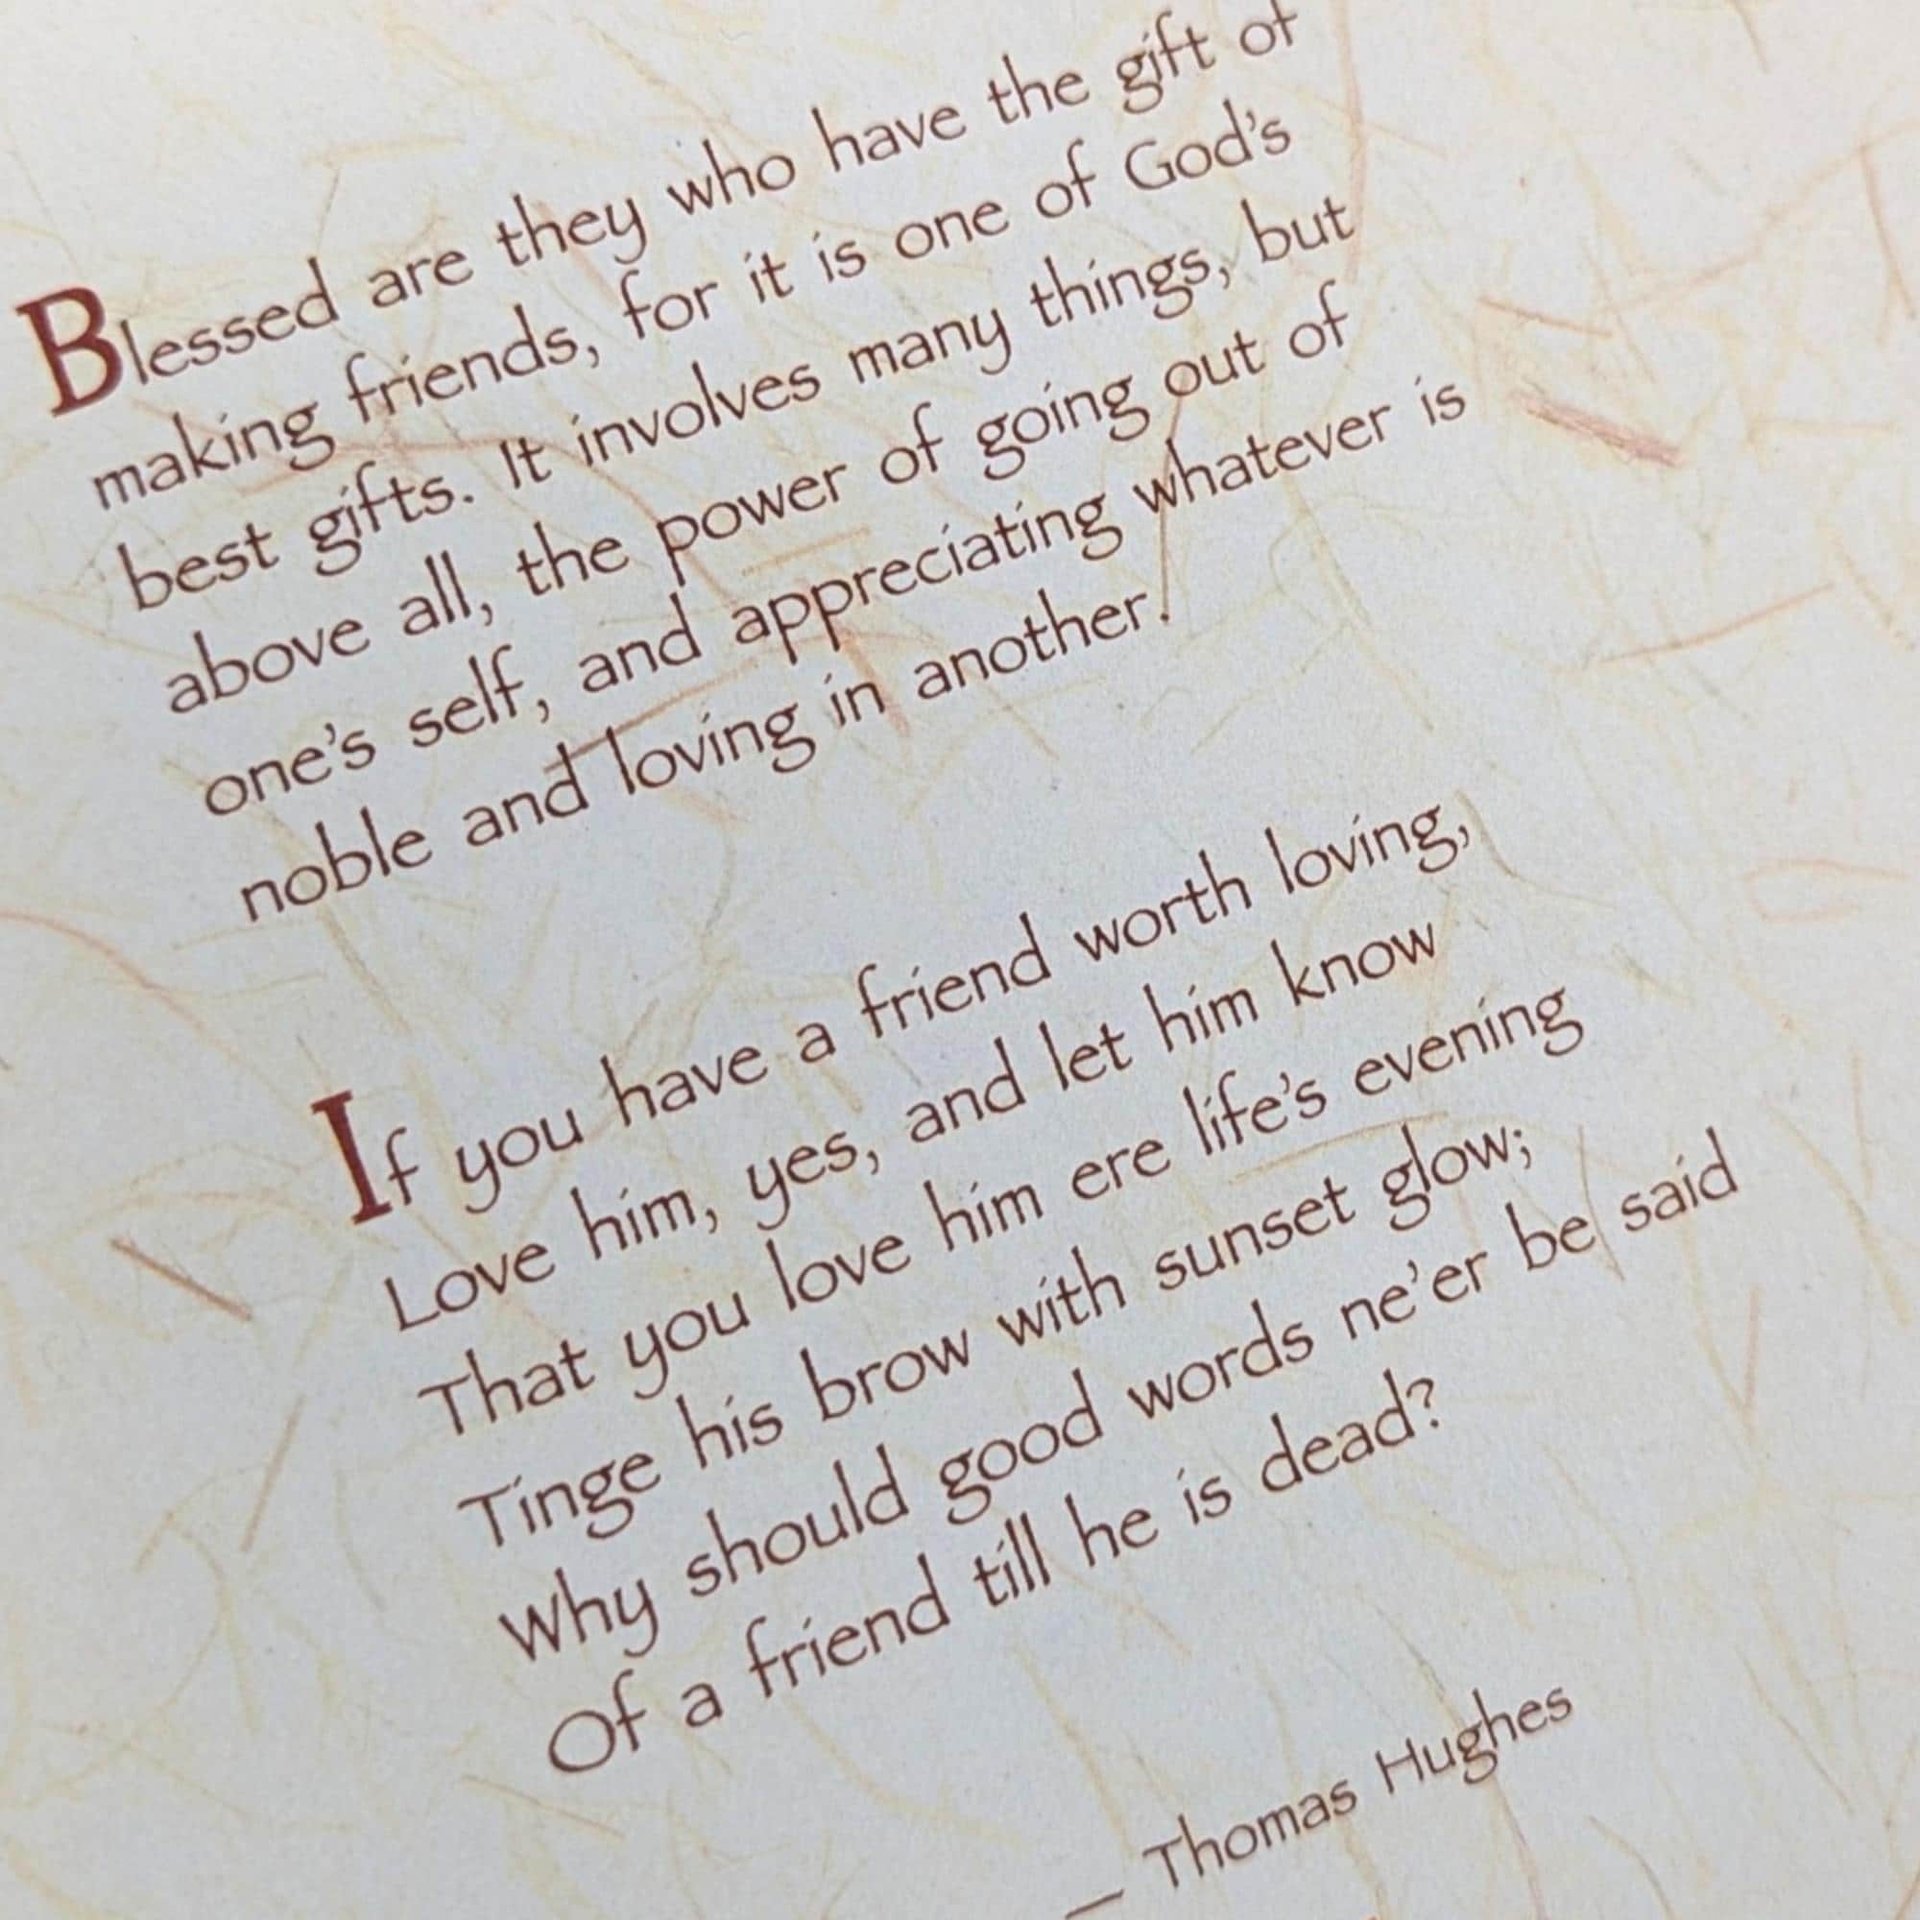 Blessed are they who have the gift of
making friends, for it is one of God's
best gifts. It involves many things, but
above all, the power of going out of
one's self, and appreciating whatever is
noble and loving in another.
If you have a friend worth loving,
Love him, yes, and let him know
That you love him ere life's evening
Tinge his brow with sunset glow;
Why should good words ne'er be said
Of a friend till he is dead?
— Thomas Hughes